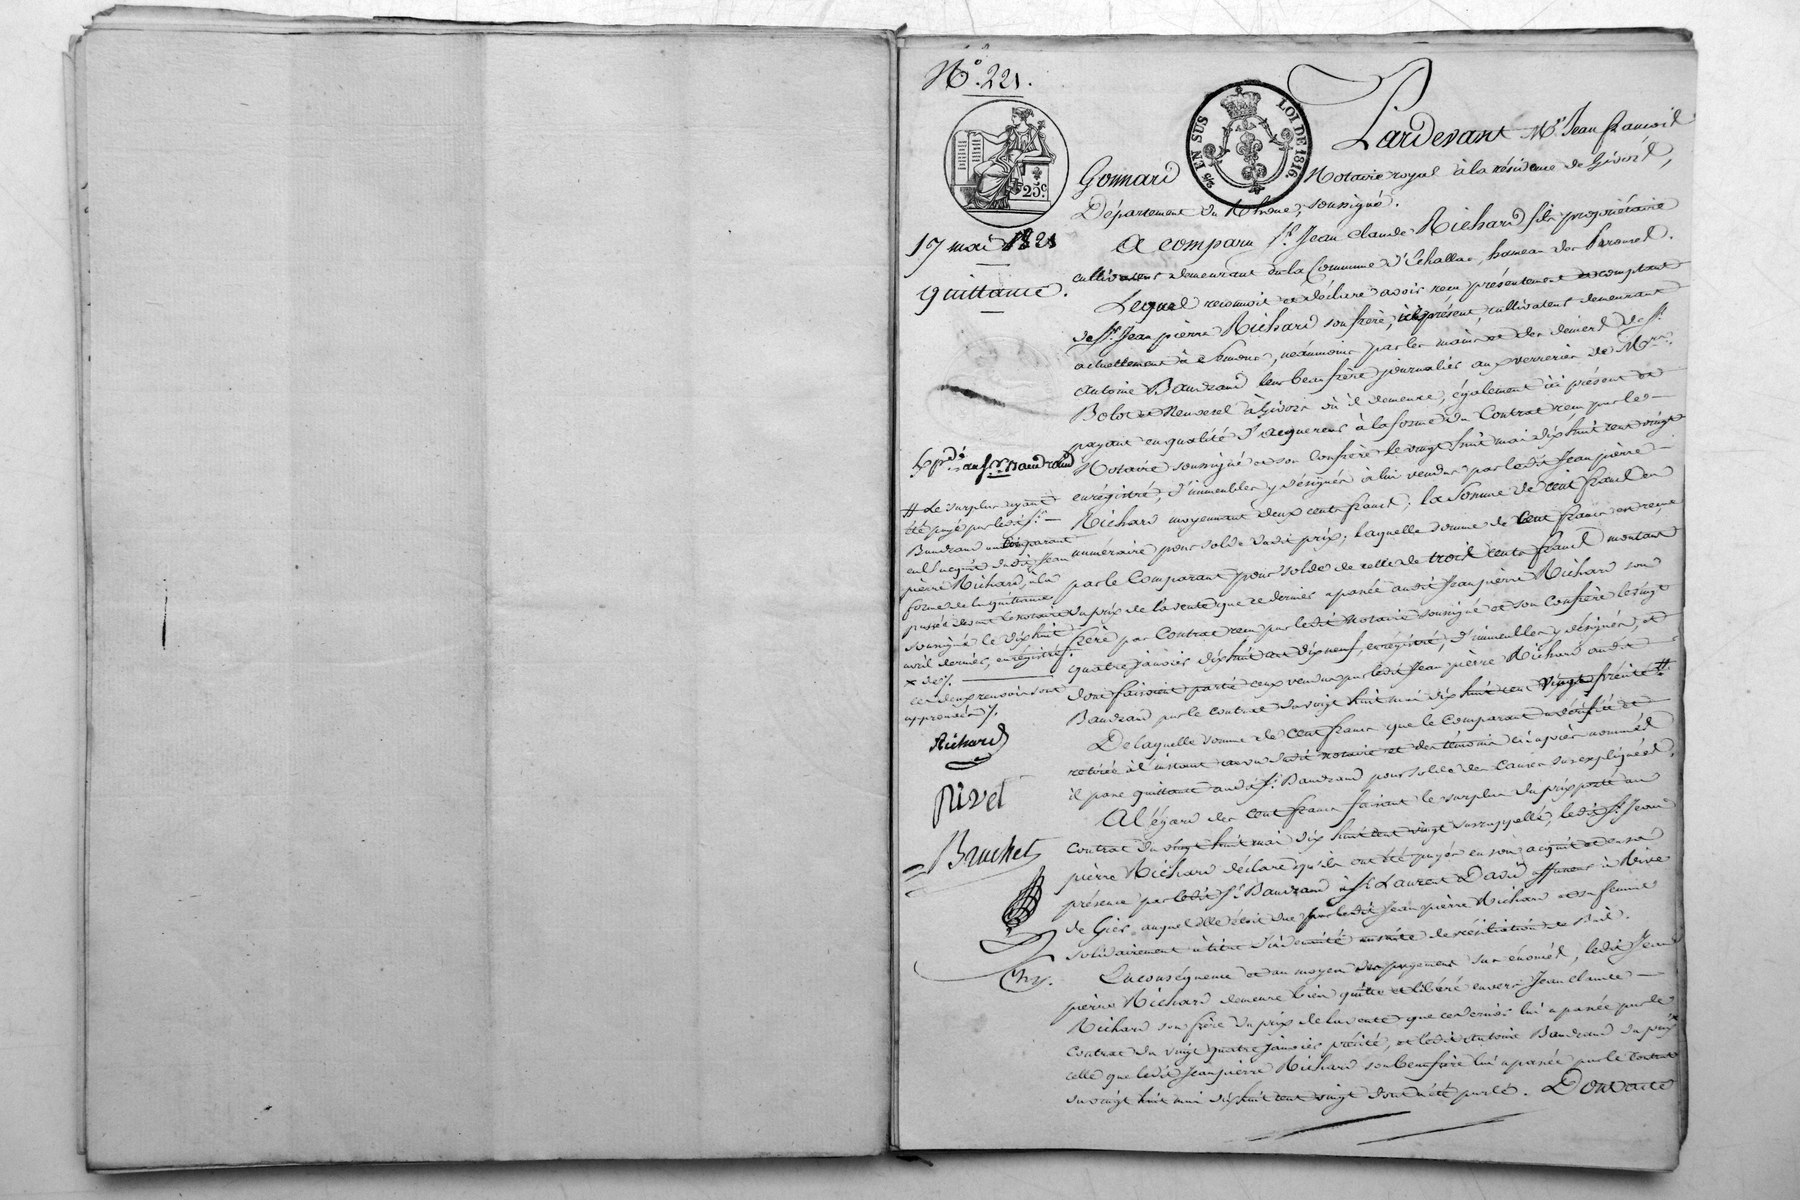 N.° 221.
25.c
5/6 EN SUS LOI DE 1816.
17 mai 1821
quittance.
Pardevant M.e Jean françois
Gonnard Notaire royal à la résidence de Givors,
Département du Rhône, soussigné.
A comparu S.r Jean Claude Richard fils propriétaire
cultivateur demeurant en la Commune d'Echallas, hameau des
Lequel reconnoit et déclare avoir reçu présentement et comptant
de S.r Jean pierre Richard son frère, ici présent, cultivateur demeurant
actuellement à néanmoins par les mains et des deniers de S.r
Antoine Baudrand leur beau frère journalier aux verreries de M.rs
Bolot et Neuvesel à Givors où il demeure, également ici présent et
payant en qualité d'acquereur à la forme du Contrat reçu par le
Notaire soussigné et son Confrère le vingt huit mai dix huit cent vingt
enrégistré, d'immeubles y désignés à lui vendus par ledit Jean pierre
Richard moyennant deux cents francs; la somme de cent francs en
numéraire pour solde dudit prix; laquelle somme de cent francs est reçue
par le Comparant pour solde de reste de trois cents francs montant
du prix de la vente que ce dernier a passée audit Jean pierre Richard son
frère par Contrat reçu par ledit Notaire soussigné et son Confrère le vingt
quatre janvier dix huit cent dix neuf, enrégistré, d'immeubles y désignés, et
dont faisoient partie ceux vendus par ledit Jean pierre Richard audit
Baudrand par le contrat du vingt huit mai dix huit cent vingt précité #
De laquelle somme de cent francs que le Comparant a vérifiée et
retirée à l'instant au vu dudit notaire et des témoins ci après nommés
il passe quittance audit S.r Baudrand pour solde des Causes sus expliquées.
A l'égard des cent francs faisant le surplus du prix porté au
contrat du vingt huit mai dix huit cent vingt susrappellé, ledit S.r Jean
pierre Richard déclare qu'ils ont été payés en son acquit et en sa
présence par ledit S.r Baudrand à S.r Laurent David à Rive
de Gier auquel elle étoit due par ledit Jean pierre Richard et sa femme
solidairement à titre d'indemnité ensuite de résiliation de Bail.
En conséquence et au moyen des payemens sus énoncés, ledit Jean
pierre Richard demeure bien quitte et libéré envers Jean Claude
Richard son frère du prix de la vente que ce dernier lui a passée par le
contrat du vingt quatre janvier précité, et ledit Antoine Baudrand du prix
celle que ledit Jean pierre Richard son beau frère lui a passée par le Contrat
du vingt huit mai dix huit cent vingt dont a été parlé. Dont acte
Exp.dié au S.r Baudrand
# Le surplus ayant
été payé par ledit S.r
Baudrand au Comparant
en l'acquit dudit Jean
pierre Richard, à la
forme de la quittance
passée devant le notaire
soussigné le dix huit
avril dernier, enrégistrée.
× de /.
ces deux renvois sont
approuvés /.
Richard
Rivet
Bruchet